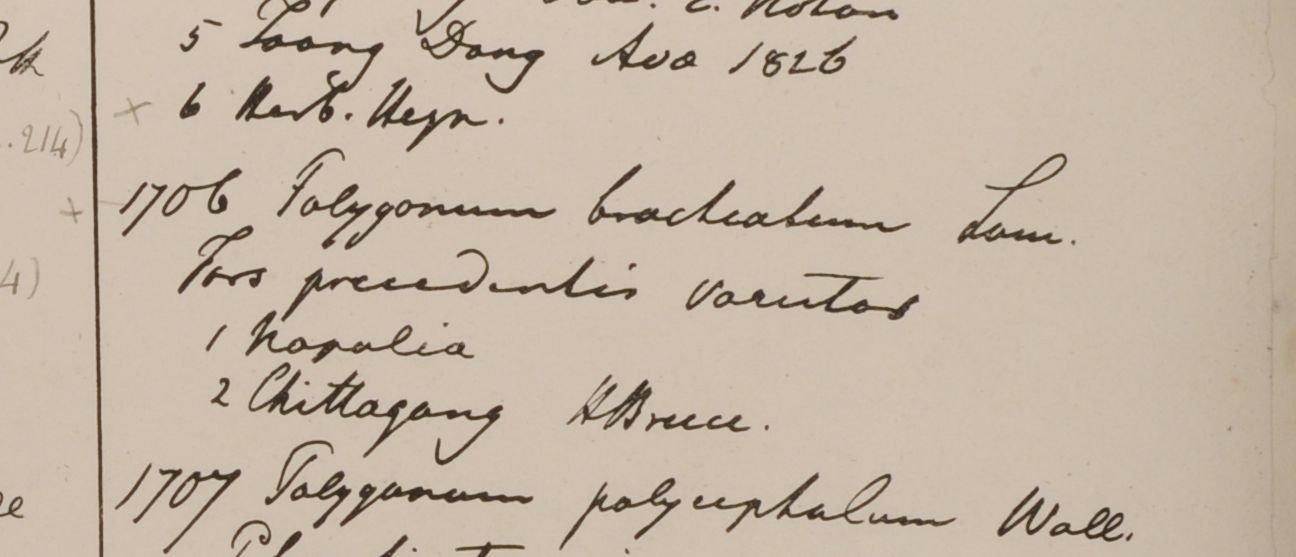 5 Toong Dong Ava 1826
× 6 Herb. Heyn.
.214)
× 1706 Polygonum bracteatum Lam.
Fors precedentis varietas
4)
1 Napalia
2 Chittagong HBruce.
1707 Polygonum polycephalum Wall.